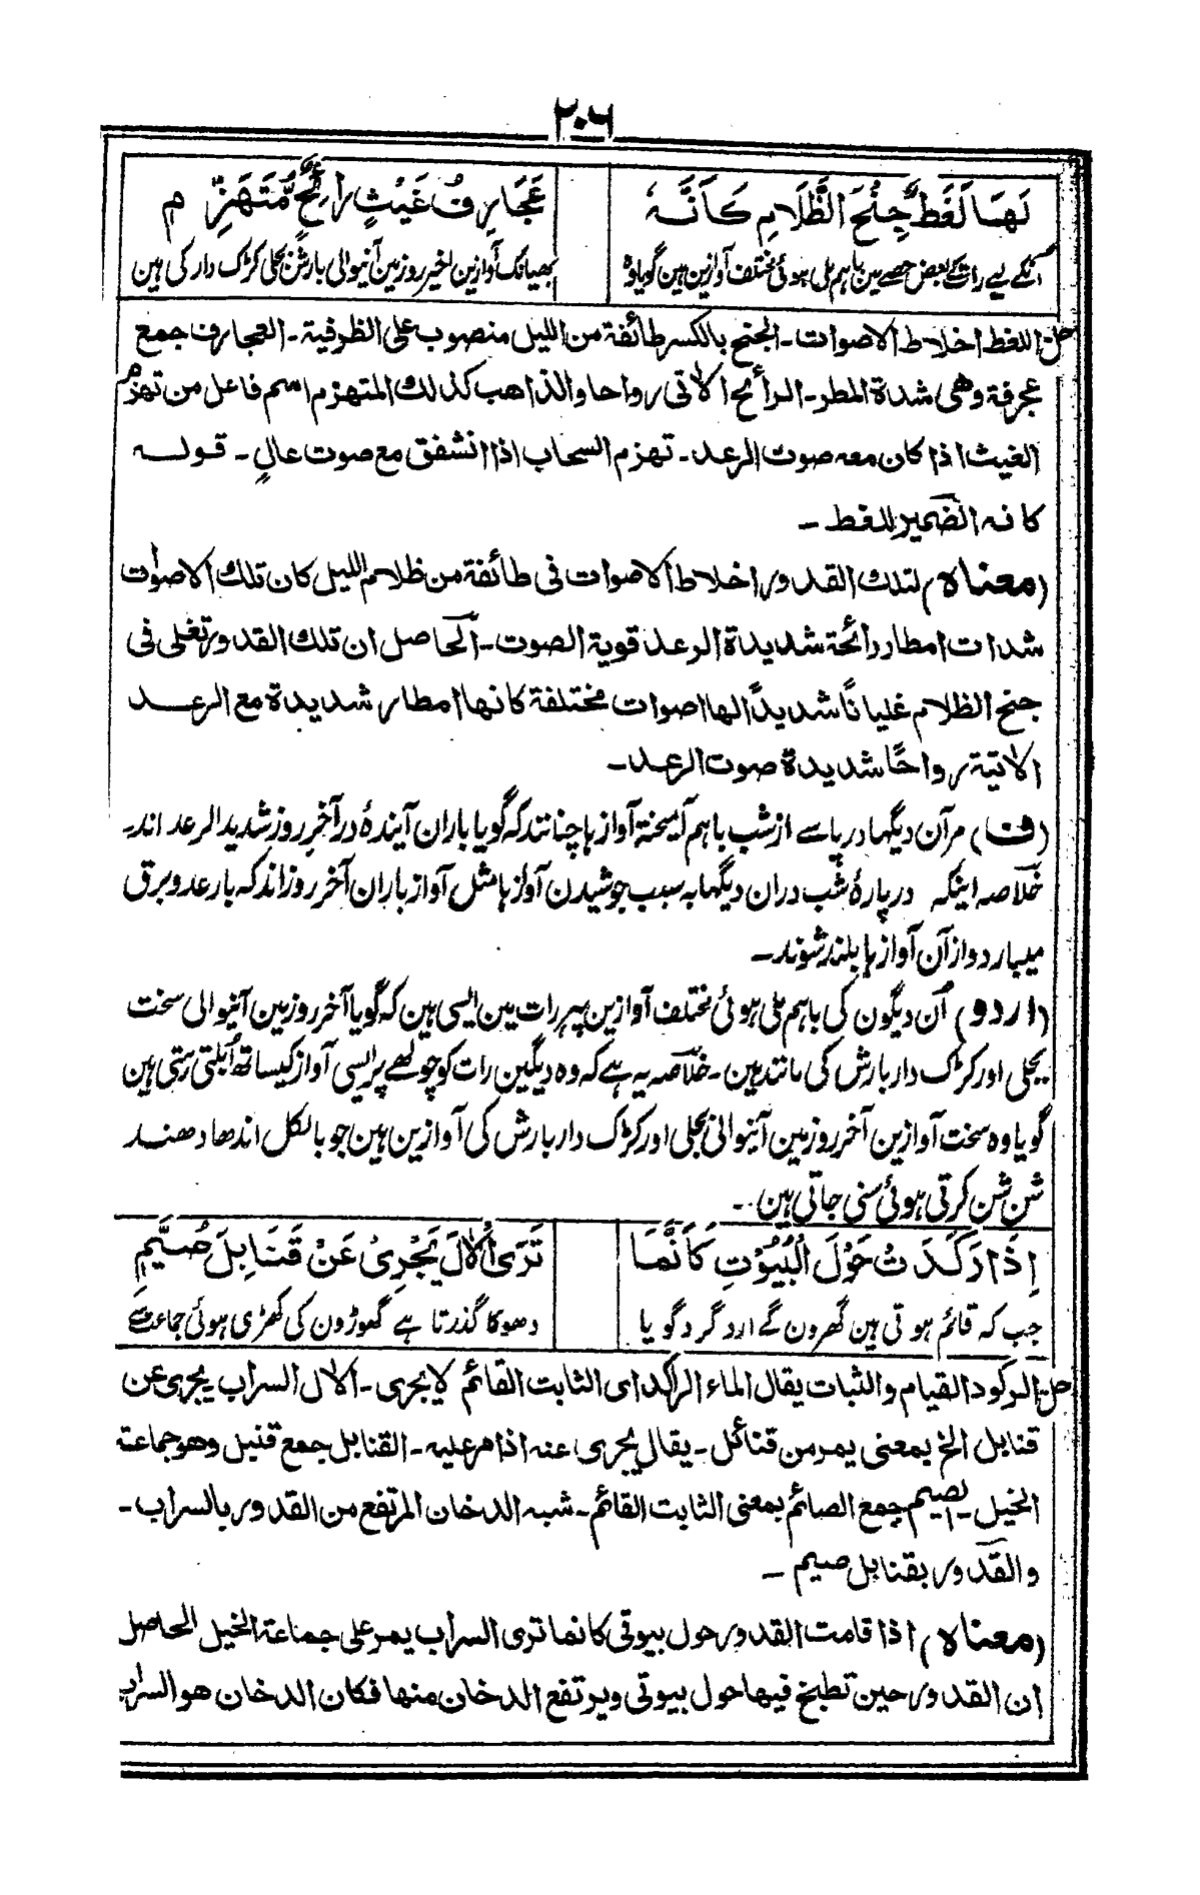 ۲۰۶
لَهَا لَغَطٌ جِنْحَ الظَّلَامِ كَاَنَّهٗ عَجَارِفُ غَيْثٍ رَائِحٍ مُّتَهَزِّمٖ
اُنکے لیے رات کے بعض حصے مین باہم ملی ہوئی مختلف آوازین ہین گویا وہ بھیانک آوازین اخیر روز مین آنیوالی بارش بجلی کڑک دار کی ہین
حل اللغط اخلاط الاصوات۔ الجنح بالکسر طائفة من اللیل منصوب علی الظرفیة۔ العجارف جمع
عجرفة وهی شدة المطر۔ الرائح الاٰتی رواحا والذاهب کذلك المتهزم اسم فاعل من تهزم
الغیث اذا کان معه صوت الرعد۔ تهزم السحاب اذا انشفق مع صوت عالٍ۔ قوله
کانه الضمیر للغط۔
(معناه) لتلك القدور اخلاط الاصوات فی طائفة من ظلام اللیل کان تلك الاصوات
شدات امطار رائحة شدیدة الرعد قویة الصوت۔ الحاصل ان تلك القدور تغلی فی
جنح الظلام غلیانًا شدیدًا لها اصوات مختلفة کانها امطار شدیدة مع الرعد
الاٰتیة رواحًا شدیدة صوت الرعد۔
(ف) مرآن دیگہا در پاسے از شب باہم آمیختہ آوازہا چنانند کہ گویا باران آیندۂ در آخر روز شدید الرعد اند۔
خلاصہ اینکہ در پارۂ شب دران دیگہا بہ سبب جوشیدن آوازہا مثل آواز باران آخر روز اند کہ با رعد و برق
میبارد و از آن آوازہا بلند شوند۔
(اردو) اُن دیگون کی باہم ملی ہوئی مختلف آوازین پہر رات مین ایسی ہین کہ گویا آخر روز مین آنیوالی سخت
بجلی اور کڑک دار بارش کی مانند ہین۔ خلاصہ یہ ہے کہ وہ دیگین رات کو چولھے پر ایسی آواز کیساتھ اُبلتی رہتی ہین
گویا وہ سخت آوازین آخر روز مین آنیوالی بجلی اور کڑک دار بارش کی آوازین ہین جو بالکل اندھا دھند
شن شن کرتی ہوئی سنی جاتی ہین۔
اِذَا رَكَدَتْ حَوْلَ الْبُيُوْتِ كَاَنَّمَا تَرَى الْاٰلَ يَجْرِىْ عَنْ قَنَابِلَ صُيَّمِ
جب کہ قائم ہوتی ہین گھرون کے ارد گرد گویا دھوکا گذرتا ہے گھوڑون کی کھڑی ہوئی جماعت سے
حل الرکود القیام والثبات یقال الماء الراکد ای الثابت القائم لا یجری۔ الاٰل السراب یجری عن
قنابل الخ بمعنی یمر من قنائل۔ یقال یجری عنه اذا مر علیه۔ القنابل جمع قنبل وهو جماعة
الخیل۔ الصیم جمع الصائم بمعنی الثابت القائم۔ شبه الدخان المرتفع من القدور بالسراب۔
والقدور بقنابل صیم۔
(معناه) اذا قامت القدور حول بیوتی کانما تری السراب یمر علی جماعة الخیل الحاصل
ان القدور حین تطبخ فیها حول بیوتی ویرتفع الدخان منها فکان الدخان هو السراب